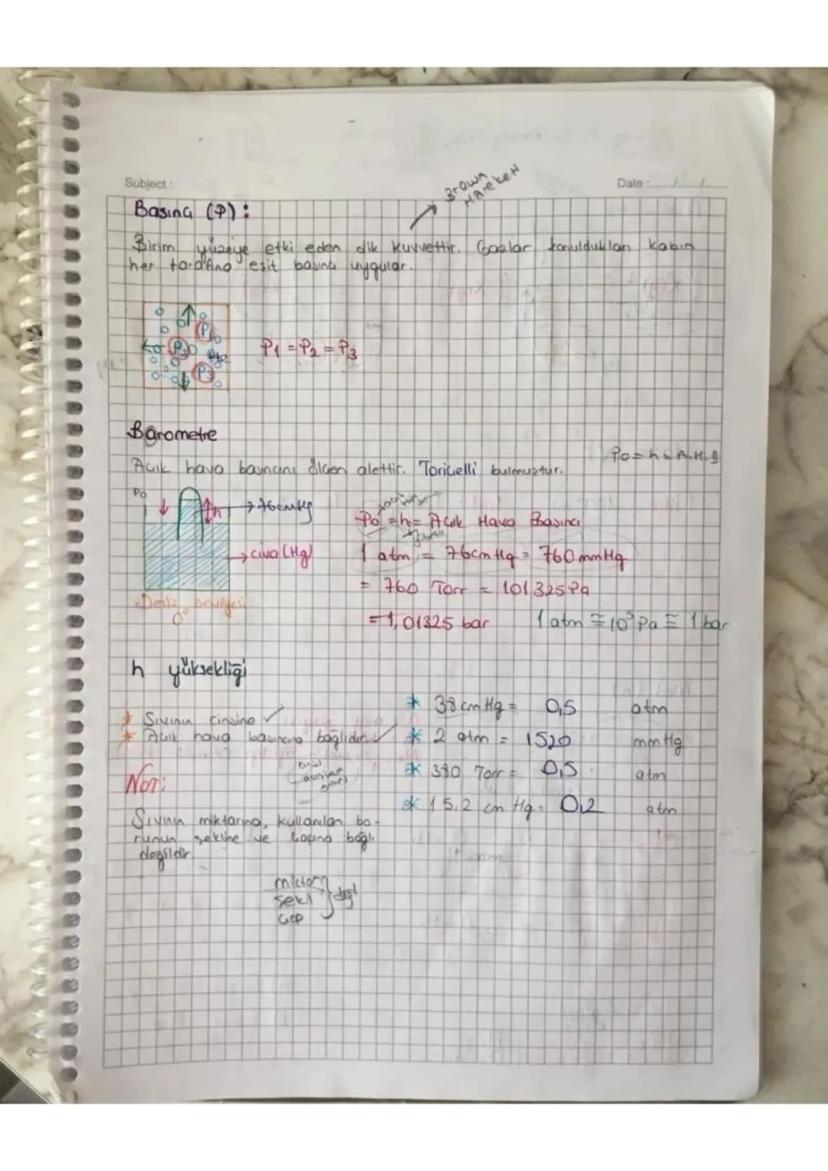 Subject:
Date:
Brown
Hareketi
Basınç (P):
Birim yüzeye etki eden dik kuvvettir. Gazlar konuldukları kabın
her tarafına eşit basınç uygular.
P1
P2
P3
P1 = P2 = P3
Barometre
Açık hava basıncını ölçen alettir. Toricelli bulmuştur.
Po = h = A.H.B
Po
h
76cmHg
civa (Hg)
Deniz seviyesi
0°
Po = h = Açık Hava Basıncı
1 atm = 76cmHg = 760mmHg
= 760 Torr = 101325Pa
= 1,01325 bar
1 atm ≅ 10⁵ Pa ≅ 1 bar
h yüksekliği
* Sıvının cinsine ✓
* Açık hava basıncına bağlıdır. ✓
* 38 cmHg = 0,5 atm
* 2 atm = 1520 mmHg
* 380 Torr = 0,5 atm
* 15,2 cm Hg = 0,2 atm
Not:
Sıvının miktarına, kullanılan bo-
runun şekline ve çapına bağlı
değildir.
miktar
şekil
çap
değil